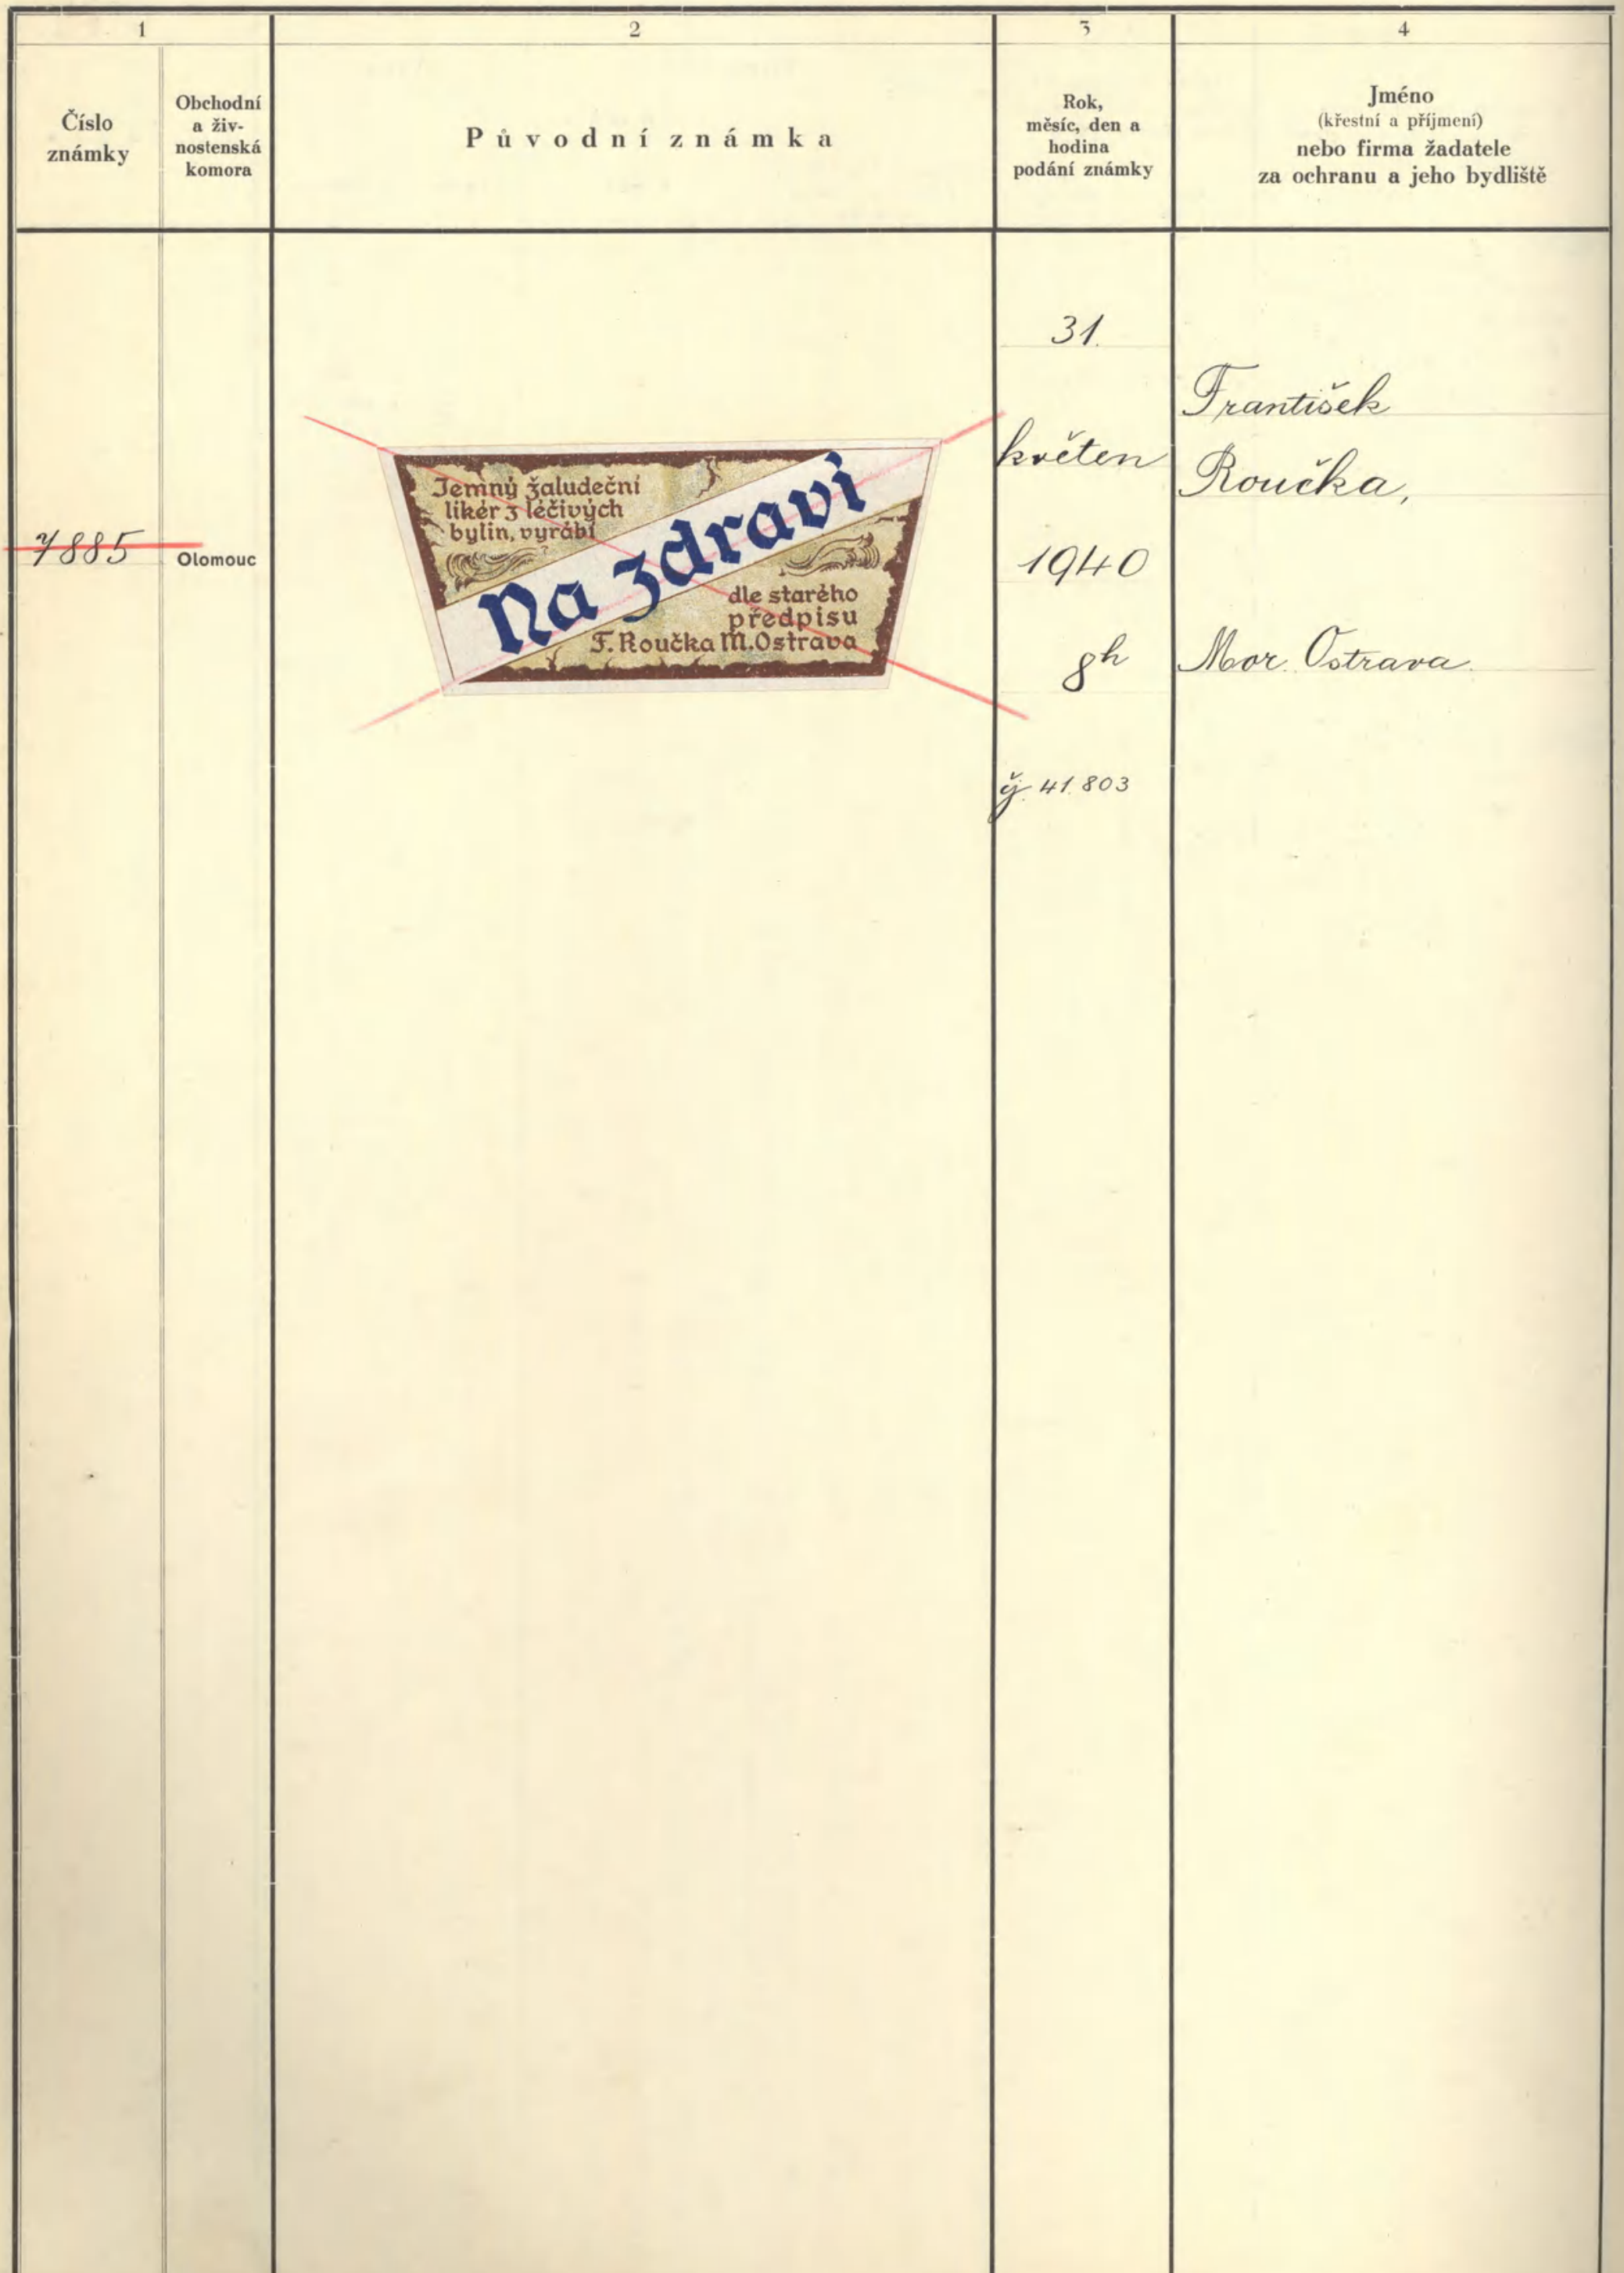 1
2
3
4
Číslo
známky
Obchodní
a živ-
nostenská
komora
Původní známka
Rok,
měsíc, den a
hodina
podání známky
Jméno
(křestní a příjmení)
nebo firma žadatele
za ochranu a jeho bydliště
7885
Olomouc
Jemný žaludeční
likér z léčivých
bylin, vyrábí
Na zdraví
dle starého
předpisu
F. Roučka M. Ostrava
31.
květen
1940
8h
čj. 41.803
František
Roučka,
Mor. Ostrava.